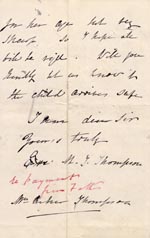 for her age but very
sharp so I hope she
will be right. Will you
kindly let us know if
the child arrives safe
I am dear Sir
Yours truly
M. J. Thompson
re payment
from
Mrs Thompson